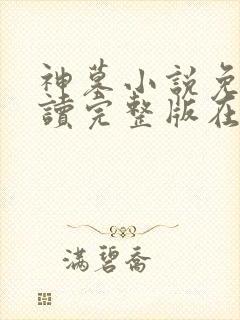 神墓小說免
讀完整版在
滿碧喬